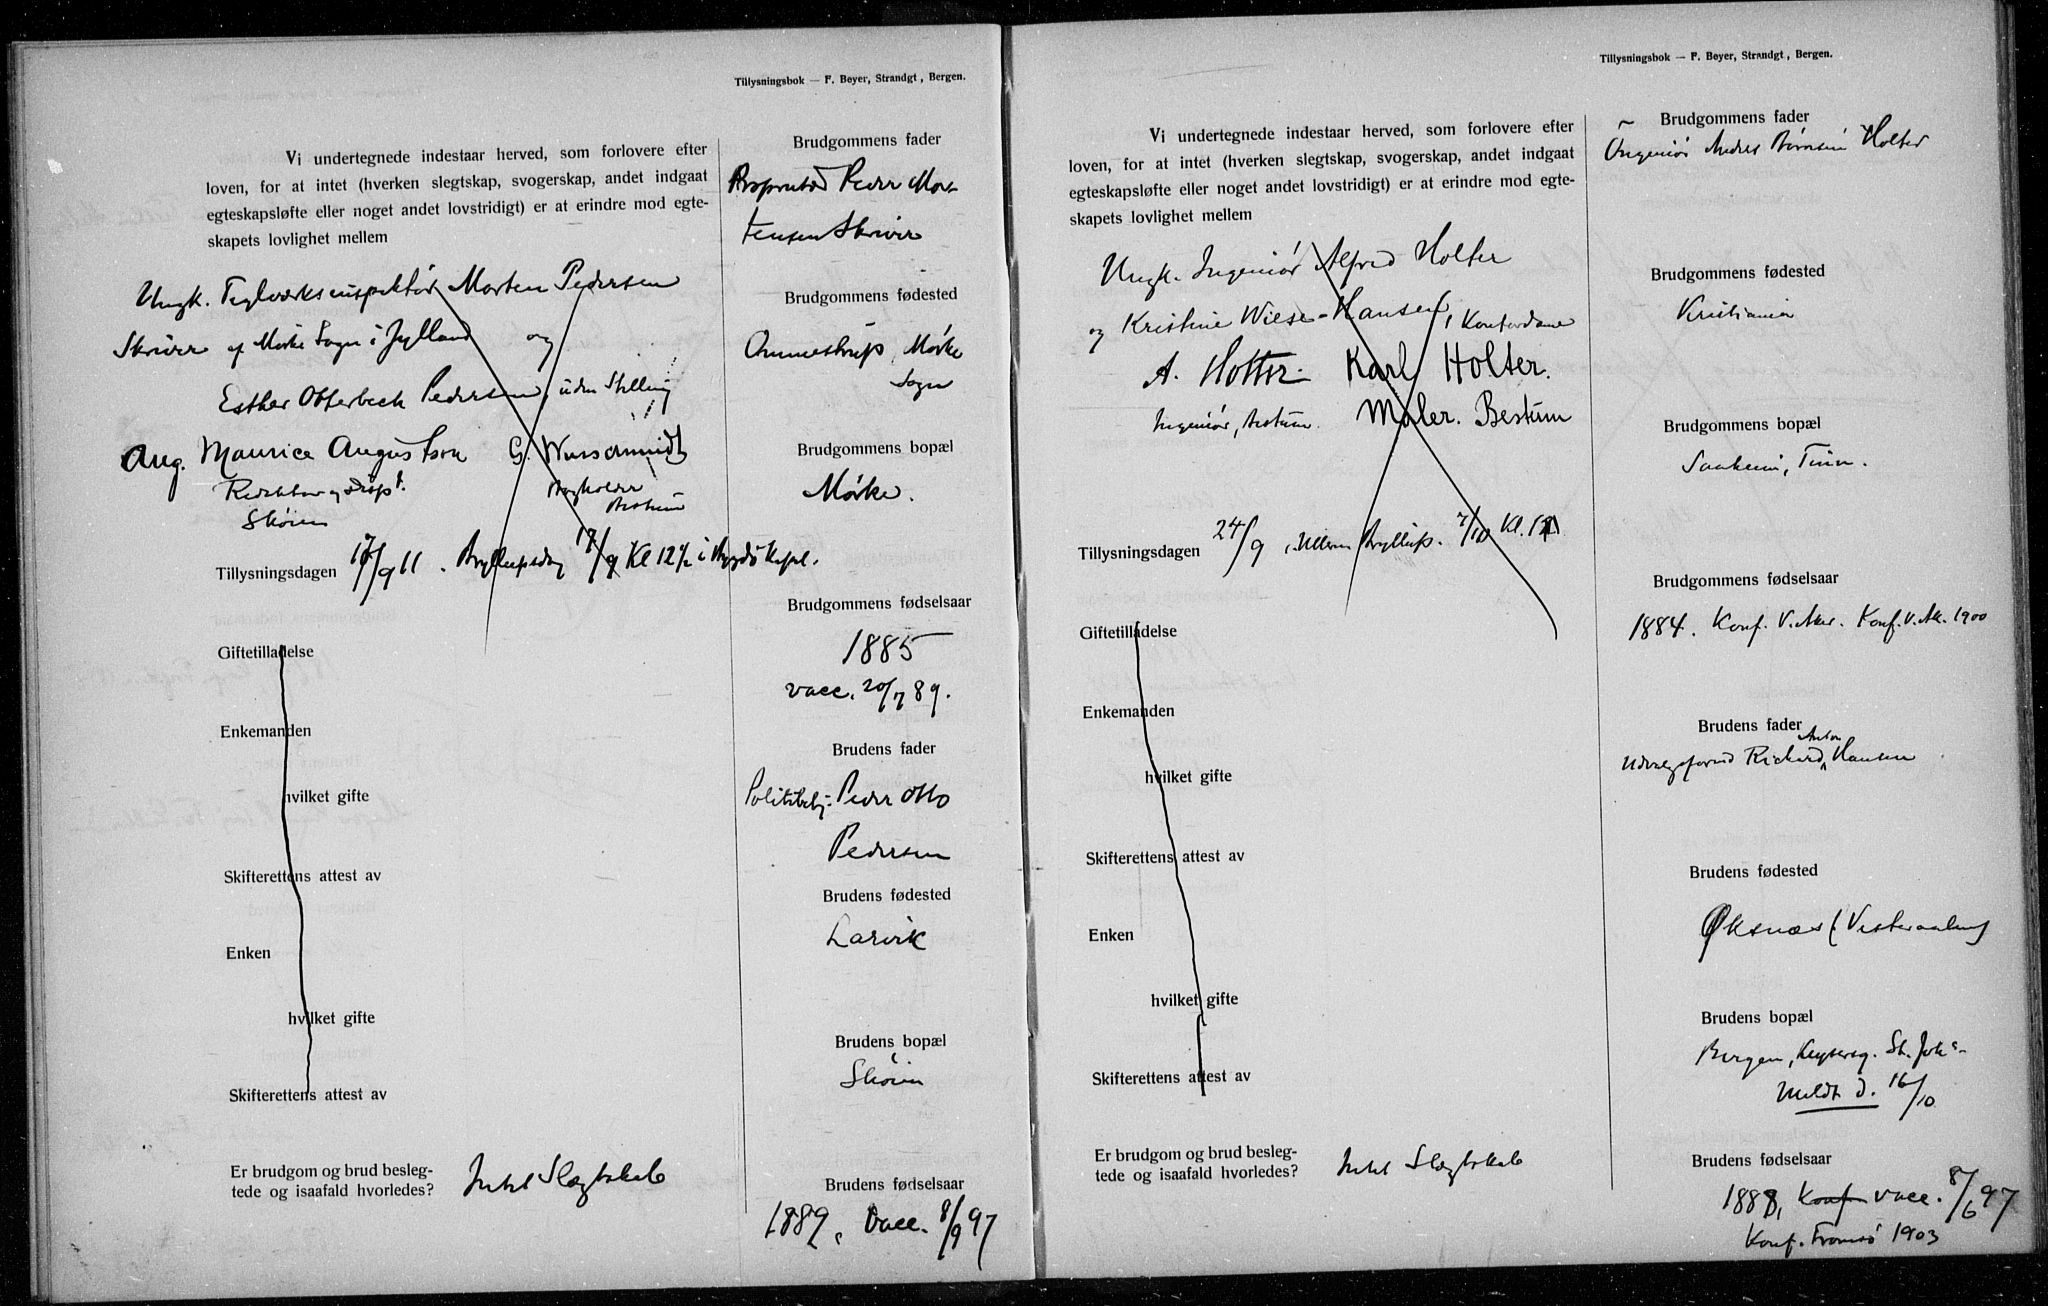 Tillysningsbok — F. Beyer, Strandgt, Bergen.
Vi undertegnede indestaar herved, som forlovere efter
loven, for at intet (hverken slegtskap, svogerskap, andet indgaat
egteskapsløfte eller noget andet lovstridigt) er at erindre mod egte-
skapets lovlighet mellem
Ungk. Teglværksinspektør Morten Pedersen
Skriver af Mørke Sogn i Jylland og
Esther Otterbeck Pedersen, uden Stilling
Aug. Maurice Augustson G. Wussdmidt
Redaktør og disp.
Bogholder
Skøien
Bestum
Tillysningsdagen 17/9 11. Bryllupsdag /9 Kl 12½ i Bygdø Kapel.
Giftetilladelse
Enkemanden
hvilket gifte
Skifterettens attest av
Enken
hvilket gifte
Skifterettens attest av
Er brudgom og brud besleg-
tede og isaafald hvorledes? Intet Slægtskab
Brudgommens fader
Proprietær Peder Mor-
tensen Skriver
Brudgommens fødested
Ommestrup, Mørke
Sogn
Brudgommens bopæl
Mørke.
Brudgommens fødselsaar
1885
vacc. 20/7 89.
Brudens fader
Politibetj. Peder Otto
Pedersen
Brudens fødested
Larvik
Brudens bopæl
Skøien
Brudens fødselsaar
1889, vacc. 8/9 97
Tillysningsbok — F. Beyer, Strandgt, Bergen.
Vi undertegnede indestaar herved, som forlovere efter
loven, for at intet (hverken slegtskap, svogerskap, andet indgaat
egteskapsløfte eller noget andet lovstridigt) er at erindre mod egte-
skapets lovlighet mellem
Ungk. Ingeniør Alfred Holter
og Kristine Wiese-Hansen, Kontordame
A. Holter. Karl Holter.
Ingeniør, Bestum. Maler. Bestum
Tillysningsdagen 24/9 i Ullern Bryllup. 7/10 Kl.
Giftetilladelse
Enkemanden
hvilket gifte
Skifterettens attest av
Enken
hvilket gifte
Skifterettens attest av
Er brudgom og brud besleg-
tede og isaafald hvorledes? Intet Slægtskab
Brudgommens fader
Ingeniør Andres Holter
Brudgommens fødested
Kristiania
Brudgommens bopæl
Saaheim, Tinn.
Brudgommens fødselsaar
1884. Konf. V. Aker. Konf. V. Ak. 1900
Brudens fader
Anton
Richard Hansen
Brudens fødested
Øksnæs (Vesteraalen)
Brudens bopæl
Bergen, Keyserg. St. Joh.
Meldt d. 16/10
Brudens fødselsaar
1888, Konf vacc. 8/6 97
Konf. Tromsø 1903